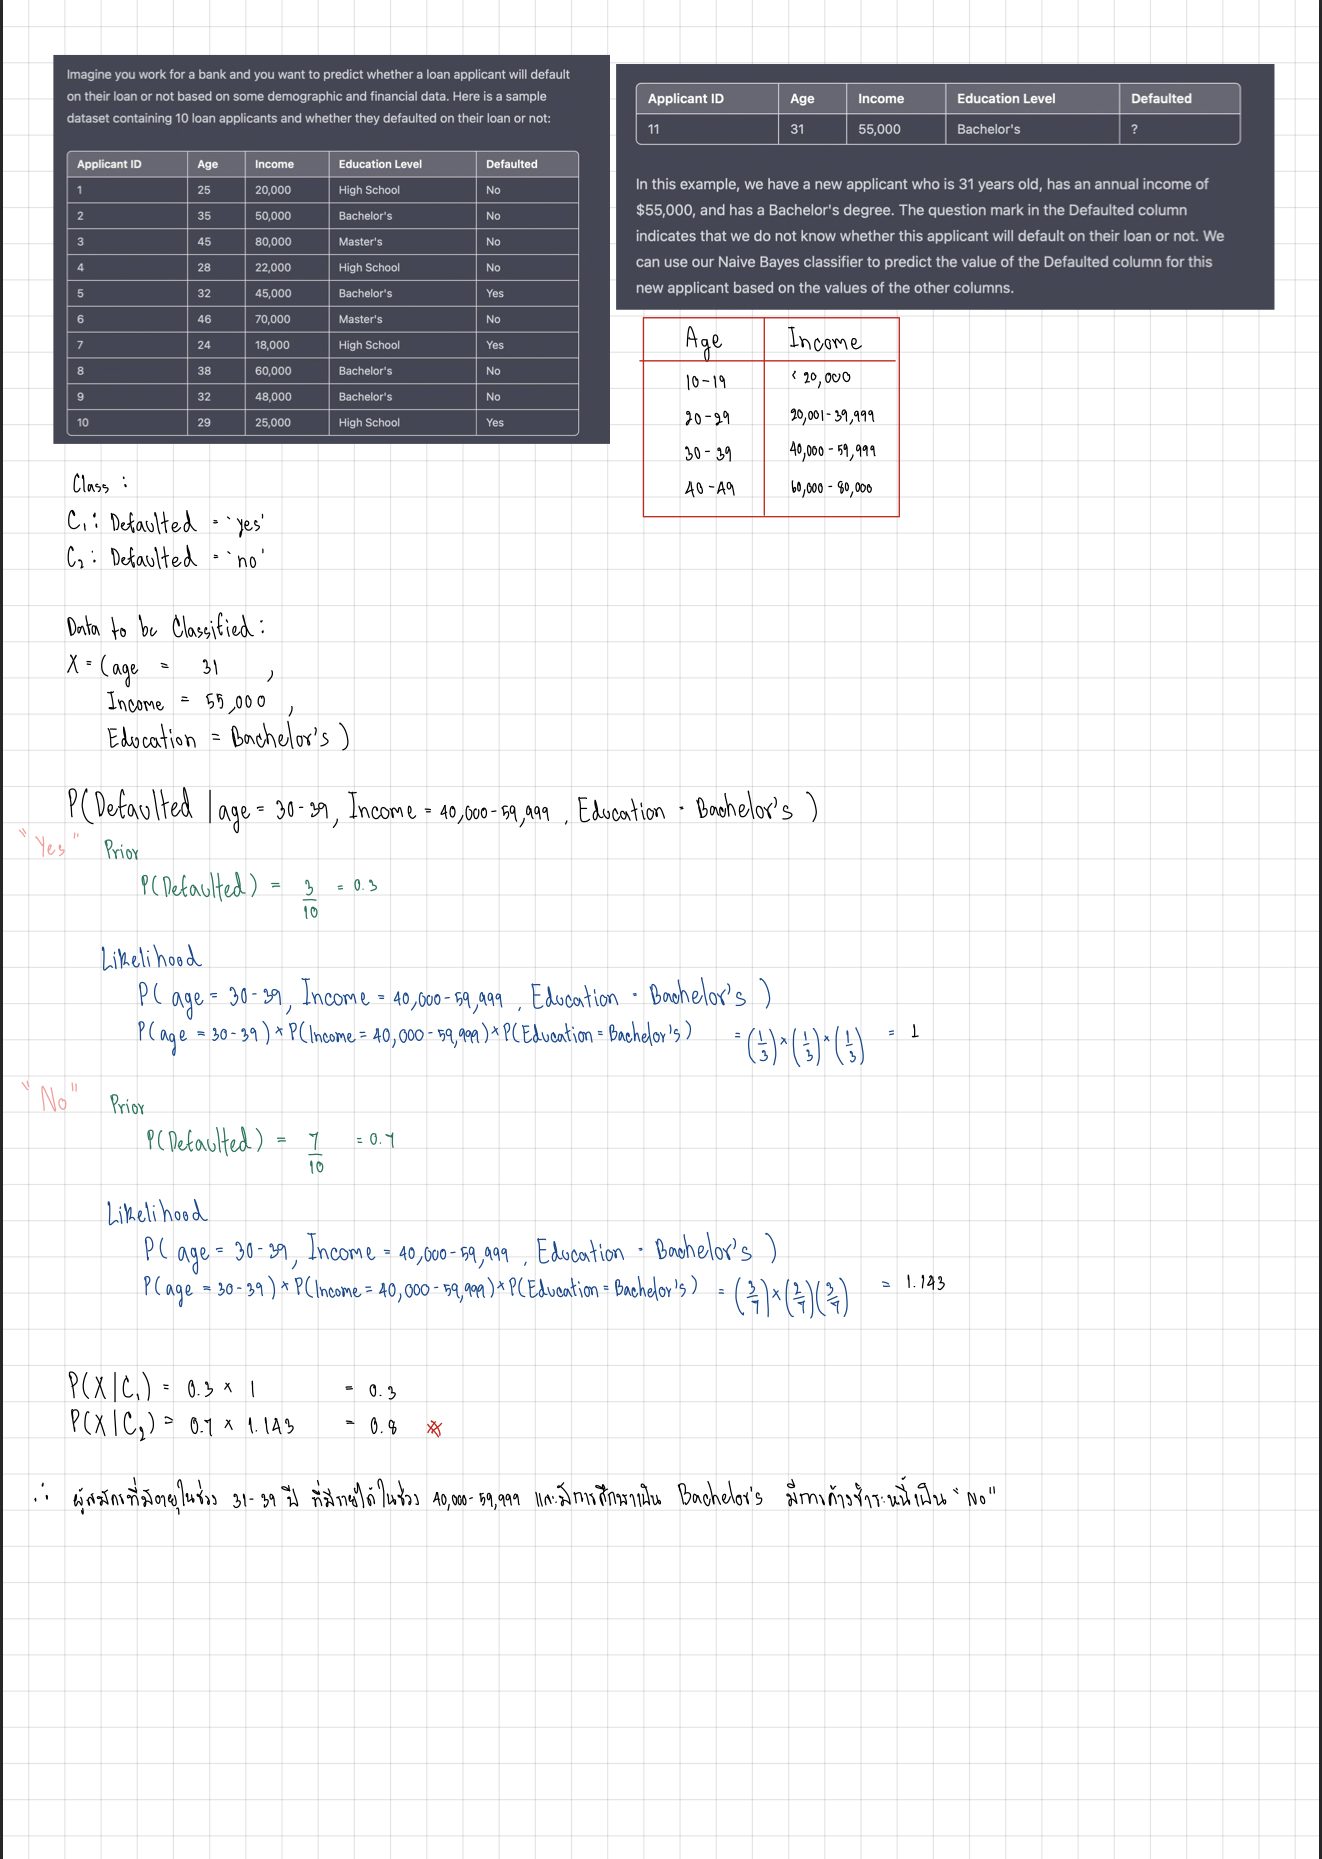 Imagine you work for a bank and you want to predict whether a loan applicant will default
on their loan or not based on some demographic and financial data. Here is a sample
dataset containing 10 loan applicants and whether they defaulted on their loan or not:
Applicant ID Age Income Education Level Defaulted
1 25 20,000 High School No
2 35 50,000 Bachelor's No
3 45 80,000 Master's No
4 28 22,000 High School No
5 32 45,000 Bachelor's Yes
6 46 70,000 Master's No
7 24 18,000 High School Yes
8 38 60,000 Bachelor's No
9 32 48,000 Bachelor's No
10 29 25,000 High School Yes
Applicant ID Age Income Education Level Defaulted
11 31 55,000 Bachelor's ?
In this example, we have a new applicant who is 31 years old, has an annual income of
$55,000, and has a Bachelor's degree. The question mark in the Defaulted column
indicates that we do not know whether this applicant will default on their loan or not. We
can use our Naive Bayes classifier to predict the value of the Defaulted column for this
new applicant based on the values of the other columns.
Age Income
10-19 < 20,000
20-29 20,001-39,999
30-39 40,000-59,999
40-49 60,000-80,000
Class :
C₁ : Defaulted = 'yes'
C₂ : Defaulted = 'no'
Data to be Classified :
X = (age = 31 ,
Income = 55,000 ,
Education = Bachelor's )
P(Defaulted | age = 30-39, Income = 40,000-59,999 , Education = Bachelor's )
"Yes" Prior
P(Defaulted) = 3/10 = 0.3
Likelihood
P( age = 30-39, Income = 40,000-59,999 , Education = Bachelor's )
P(age = 30-39) × P(Income = 40,000-59,999) × P(Education = Bachelor's) = (1/3) × (1/3) × (1/3) = 1
"No" Prior
P(Defaulted) = 7/10 = 0.7
Likelihood
P( age = 30-39, Income = 40,000-59,999 , Education = Bachelor's )
P(age = 30-39) × P(Income = 40,000-59,999) × P(Education = Bachelor's) = (3/7) × (2/7)(3/7) = 1.143
P(X|C₁) = 0.3 × 1 = 0.3
P(X|C₂) = 0.7 × 1.143 = 0.8 *
∴ ผู้สมัครที่มีอายุในช่วง 31-39 ปี ที่มีรายได้ในช่วง 40,000-59,999 และมีการศึกษาเป็น Bachelor's มีการค้างชำระหนี้เป็น "No"